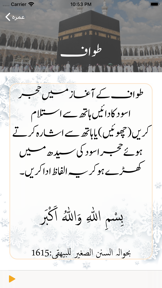 Carrier 10:53 PM
عمرہ
طواف
طواف کے آغاز میں حجر
اسود کا دائیں ہاتھ سے استلام
کریں (چھوئیں) یا ہاتھ سے اشارہ کرتے
ہوئے حجر اسود کی سیدھ میں
کھڑے ہو کر یہ الفاظ ادا کریں۔
بِسْمِ اللهِ وَاللهُ أَكْبَر
بحوالہ السنن الصغیر للبیہقی:1615